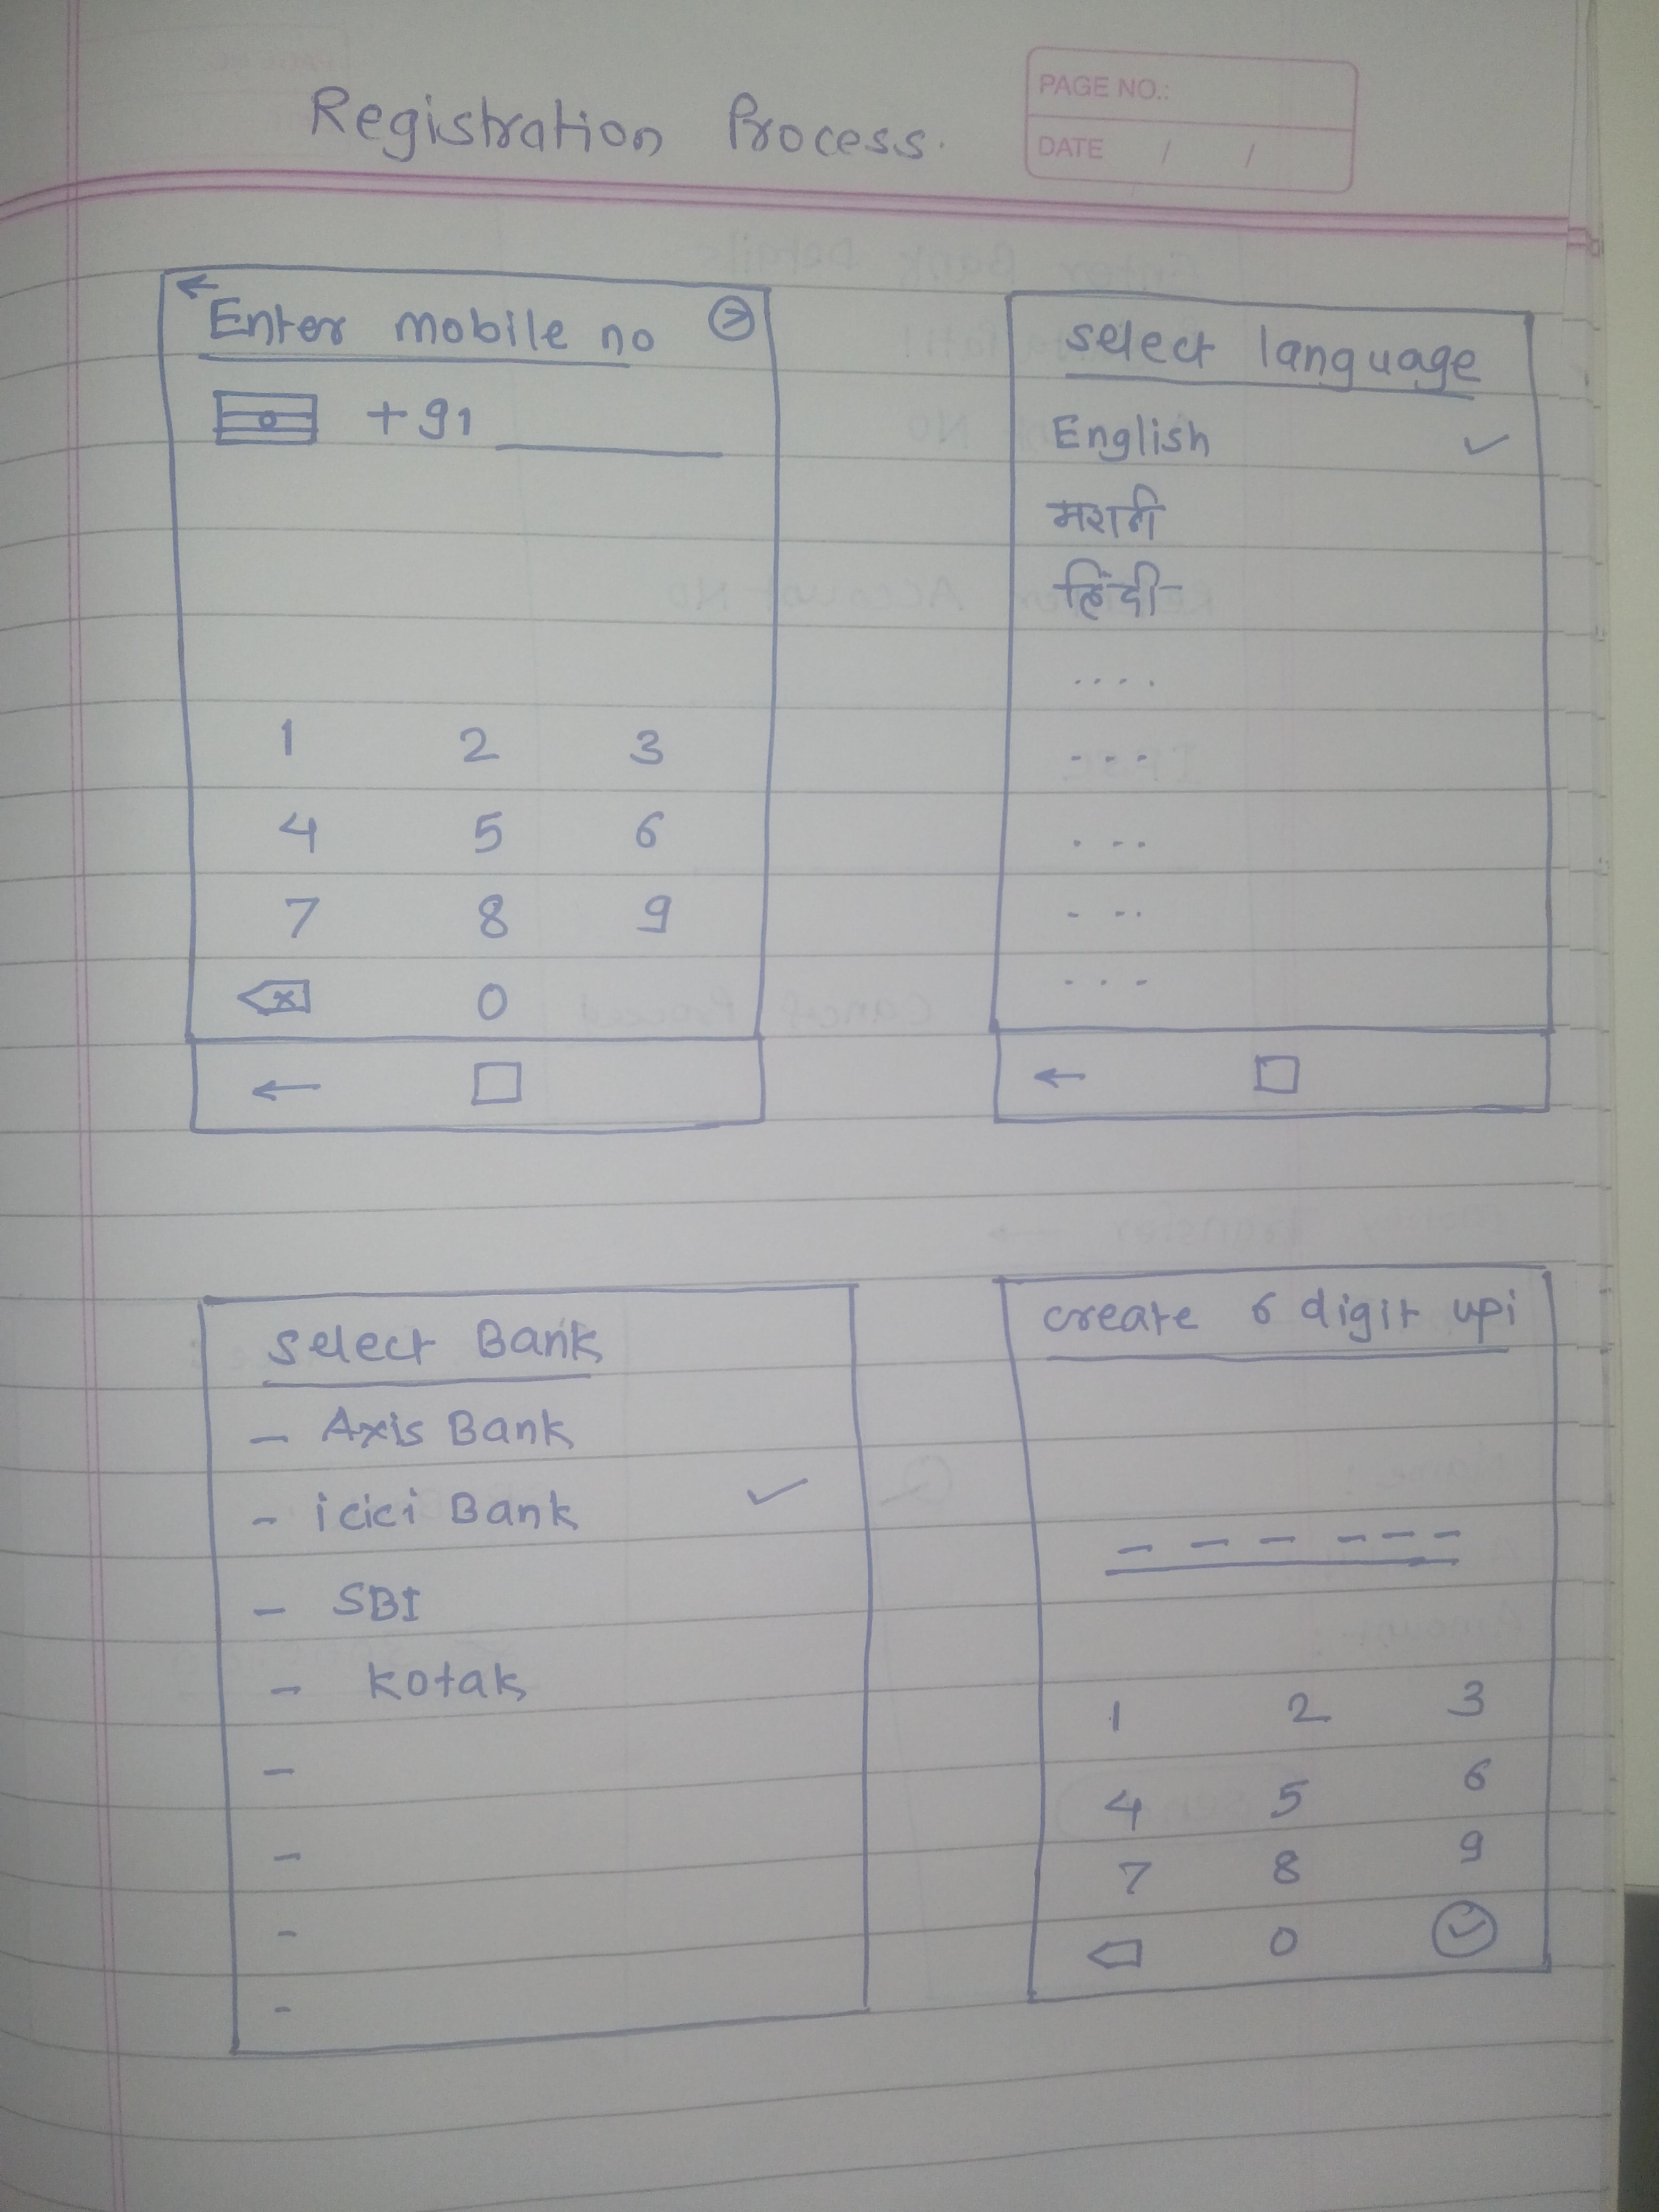 Registration Process.
PAGE NO.:
DATE / /
Enter mobile no
+91
1 2 3
4 5 6
7 8 9
x 0
select language
English ✓
मराठी
हिंदी
....
- - -
. - -
- - .
- - -
select Bank
- Axis Bank
- icici Bank ✓
- SBI
- kotak
-
-
-
-
create 6 digit upi
- - - - - -
1 2 3
4 5 6
7 8 9
0 ✓